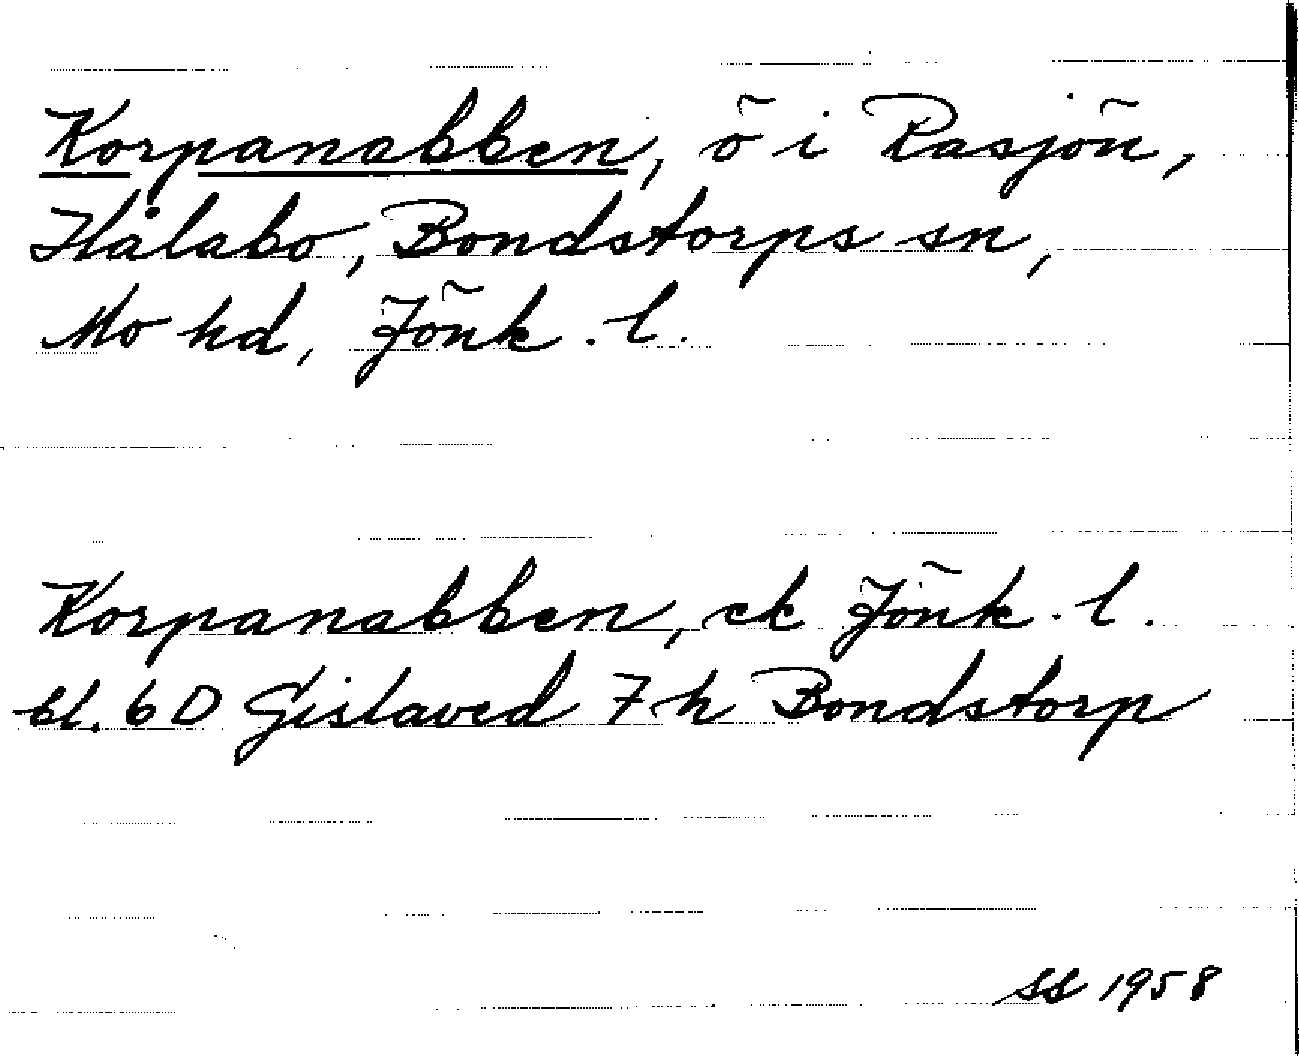 Korpanabben, ö i Rasjön,
Hålabo, Bondstorps sn,
Mo hd, Jönk. l.
Korpanabben, ek Jönk. l.
bl. 6 D Gislaved 7 h Bondstorp
SS 1958